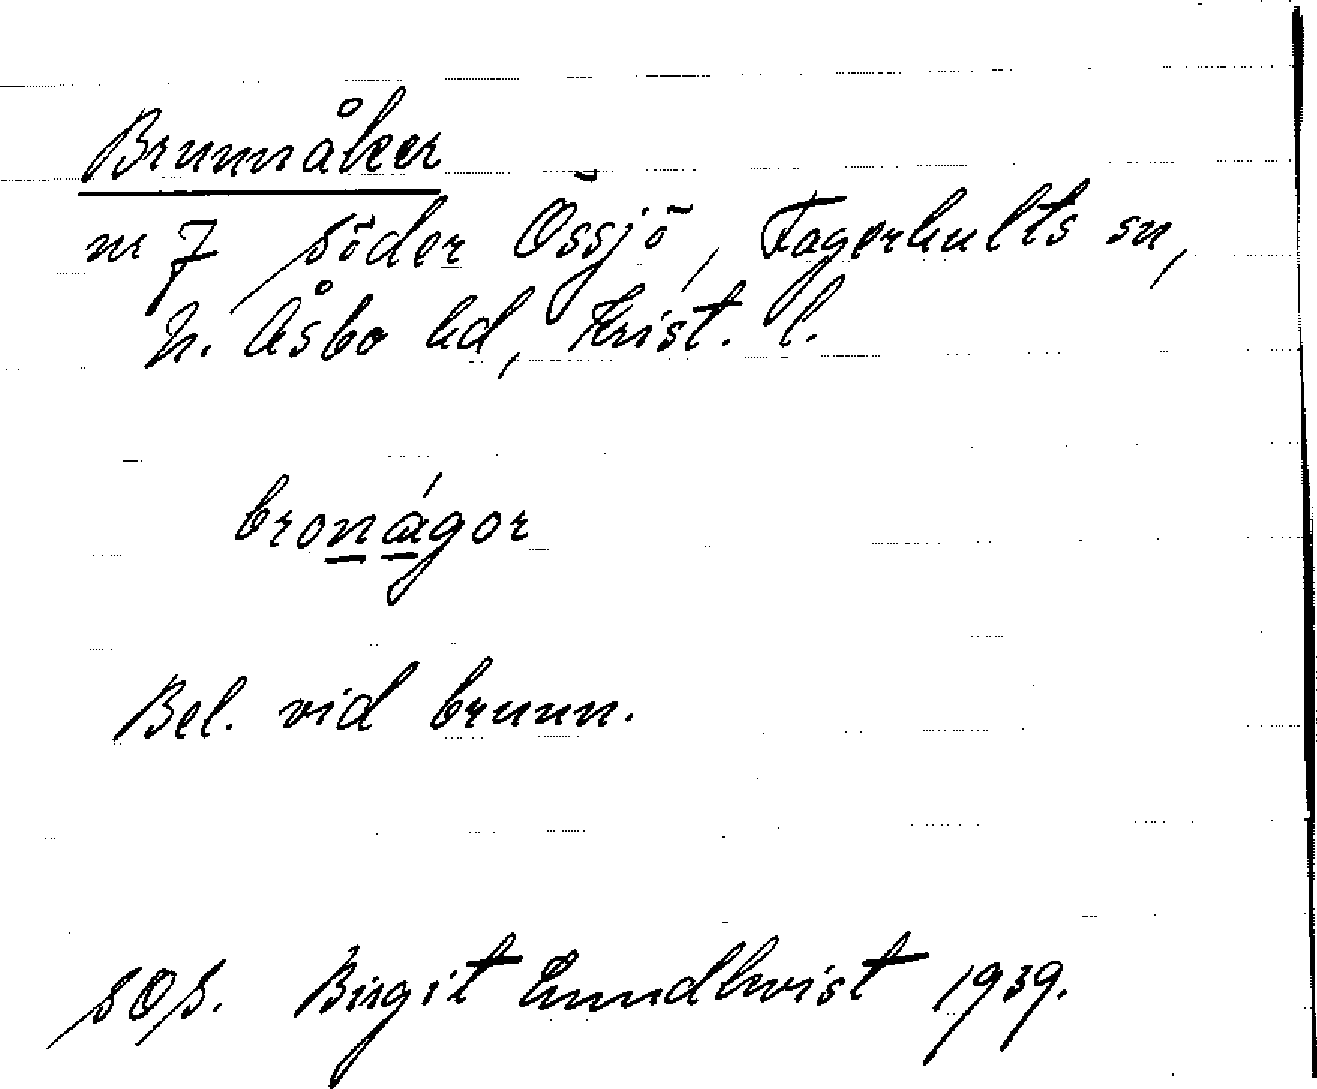 Brunnåker
nr 7 Söder Össjö, Fagerhults sn,
N. Åsbo hd, Krist. l.
bronágor
Bel. vid brunn.
SOS. Birgit Lundkvist 1939.